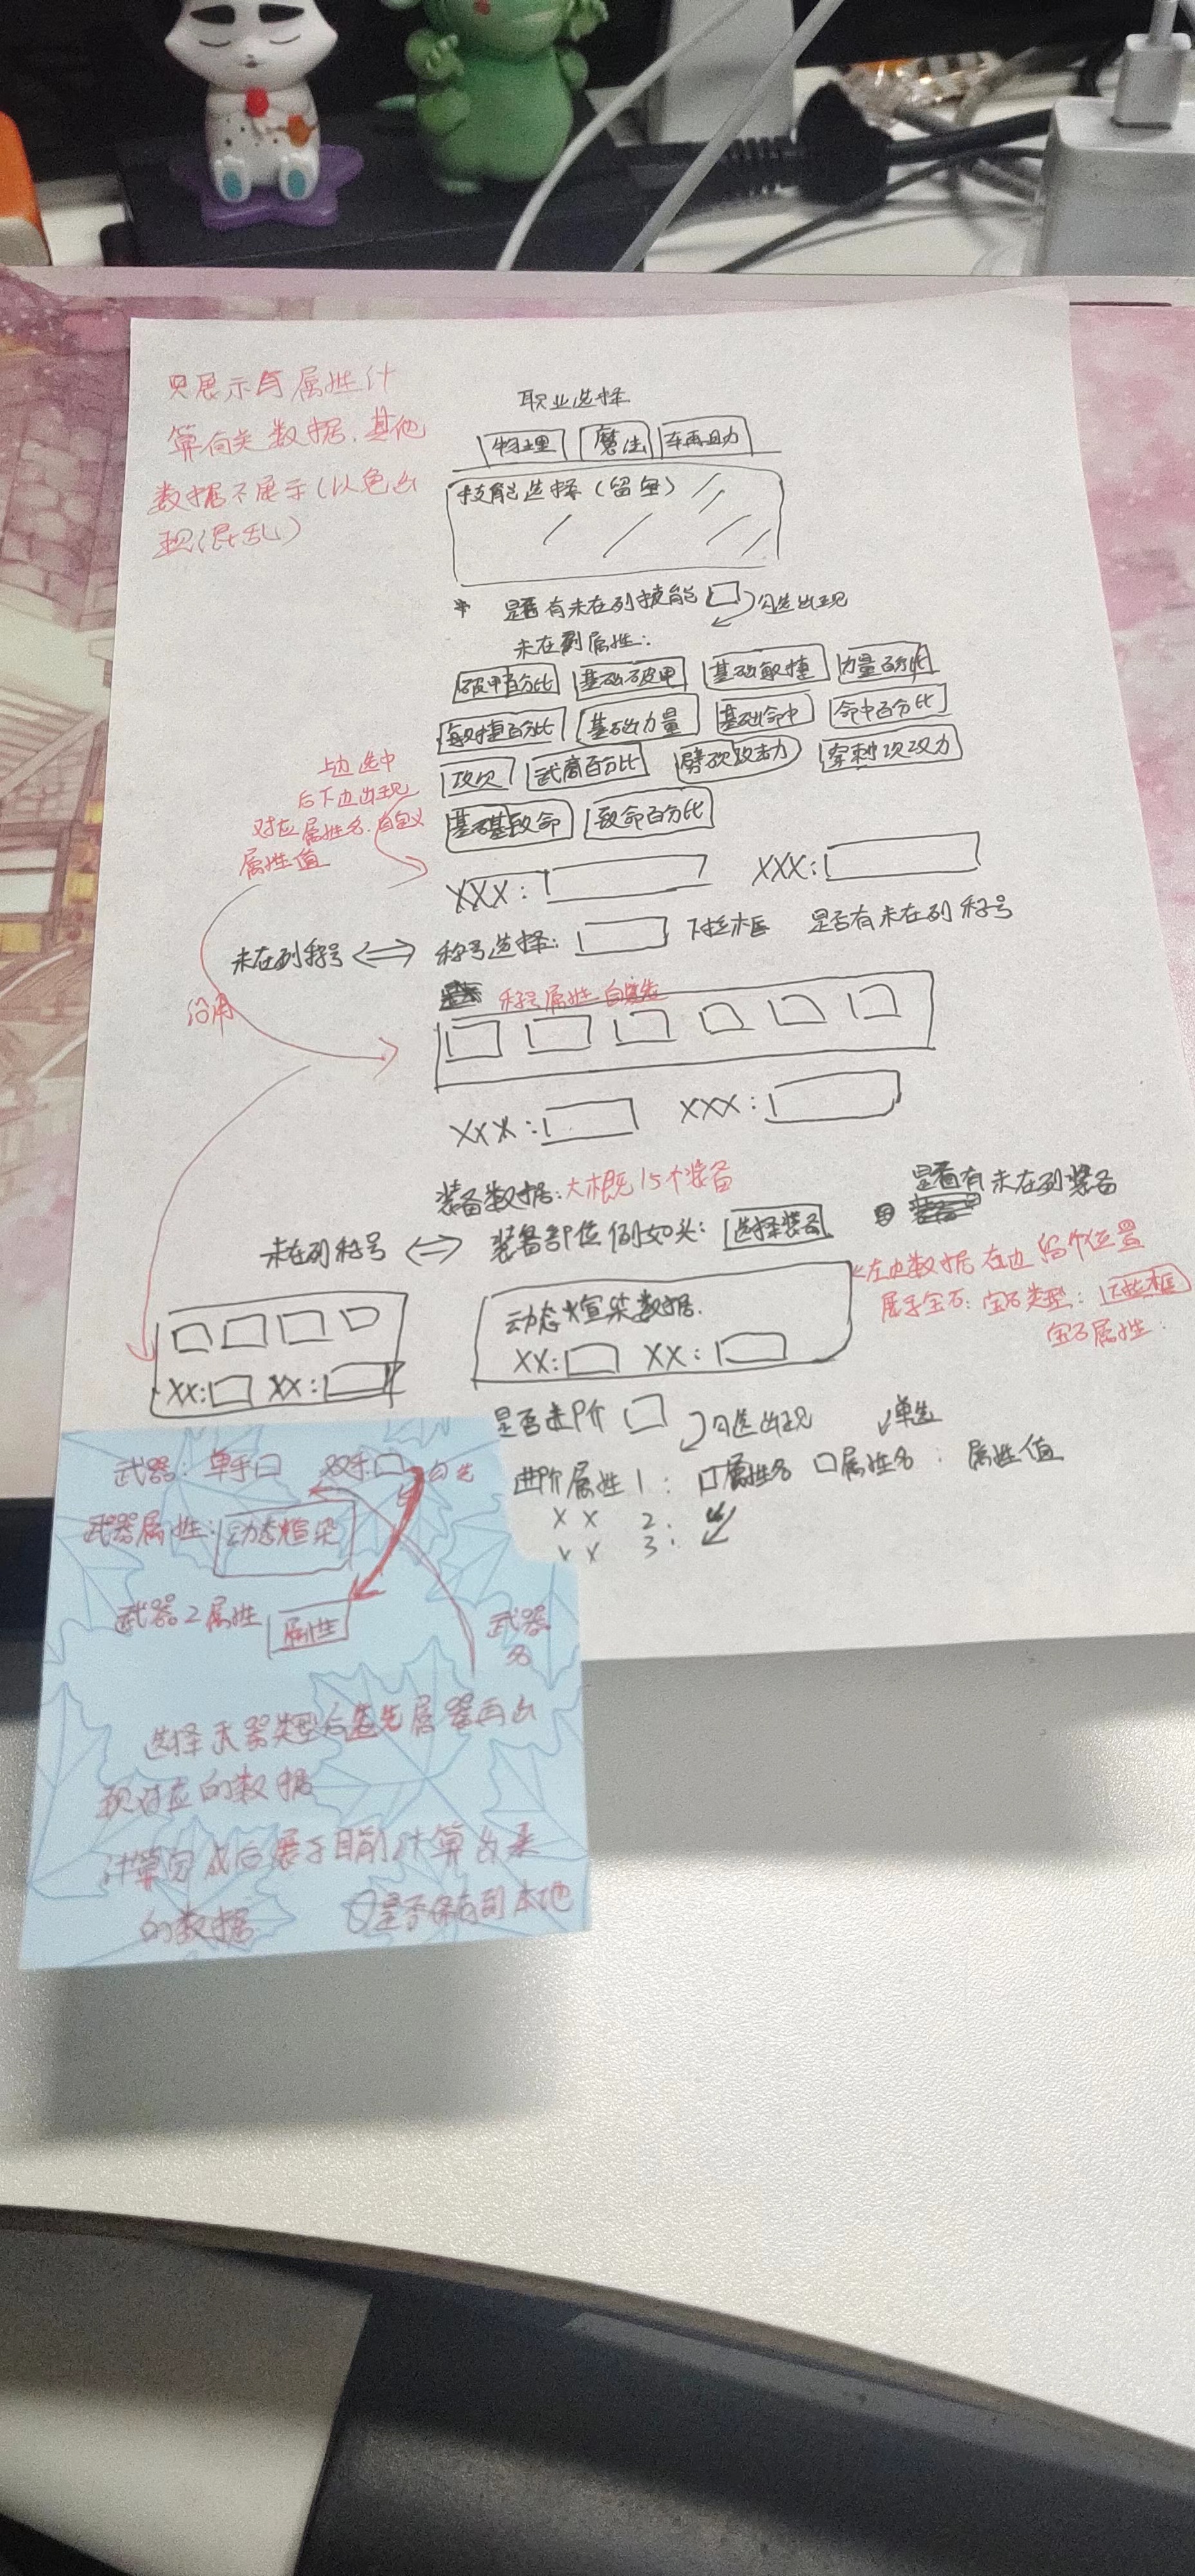 只展示与属性计
算有关数据,其他
数据不展示(以免出
现混乱)
职业选择
物理 魔法 车再助力
技能选择(留坐)
* 是否有未在列技能 勾选出现
未在列属性:
破甲百分比 基础破甲 基础敏捷 力量百分比
敏捷百分比 基础力量 基础命中 命中百分比
攻欠 武器百分比 劈砍攻击力 穿刺攻力
基础致命 致命百分比
上边选中
后下边出现
对应属性名,自定义
属性值
XXX: XXX:
未在列称号 ⇔ 称号选择: 下拉框 是否有未在列称号
沿用
称号属性 自选
XXX: XXX:
装备数据:大概15个装备
是否有未在列装备
未在列称号 ⇔ 装备部位例如头: 选择装备
左边数据 右边留个位置
展示宝石:宝石类型:下拉框
宝石属性:
动态渲染数据.
XX: XX:
XX: XX:
是否进阶 勾选出现 单选
进阶属性1: 口属性名 口属性名: 属性值
XX 2:
XX 3:
武器:单手口 双手口 勾选
武器属性: 动态渲染
武器2属性 属性
武器
名
选择武器类型后首先 武器再出
现对应的数据
计算完成后展示目前计算出来
的数据 是否保存到本地